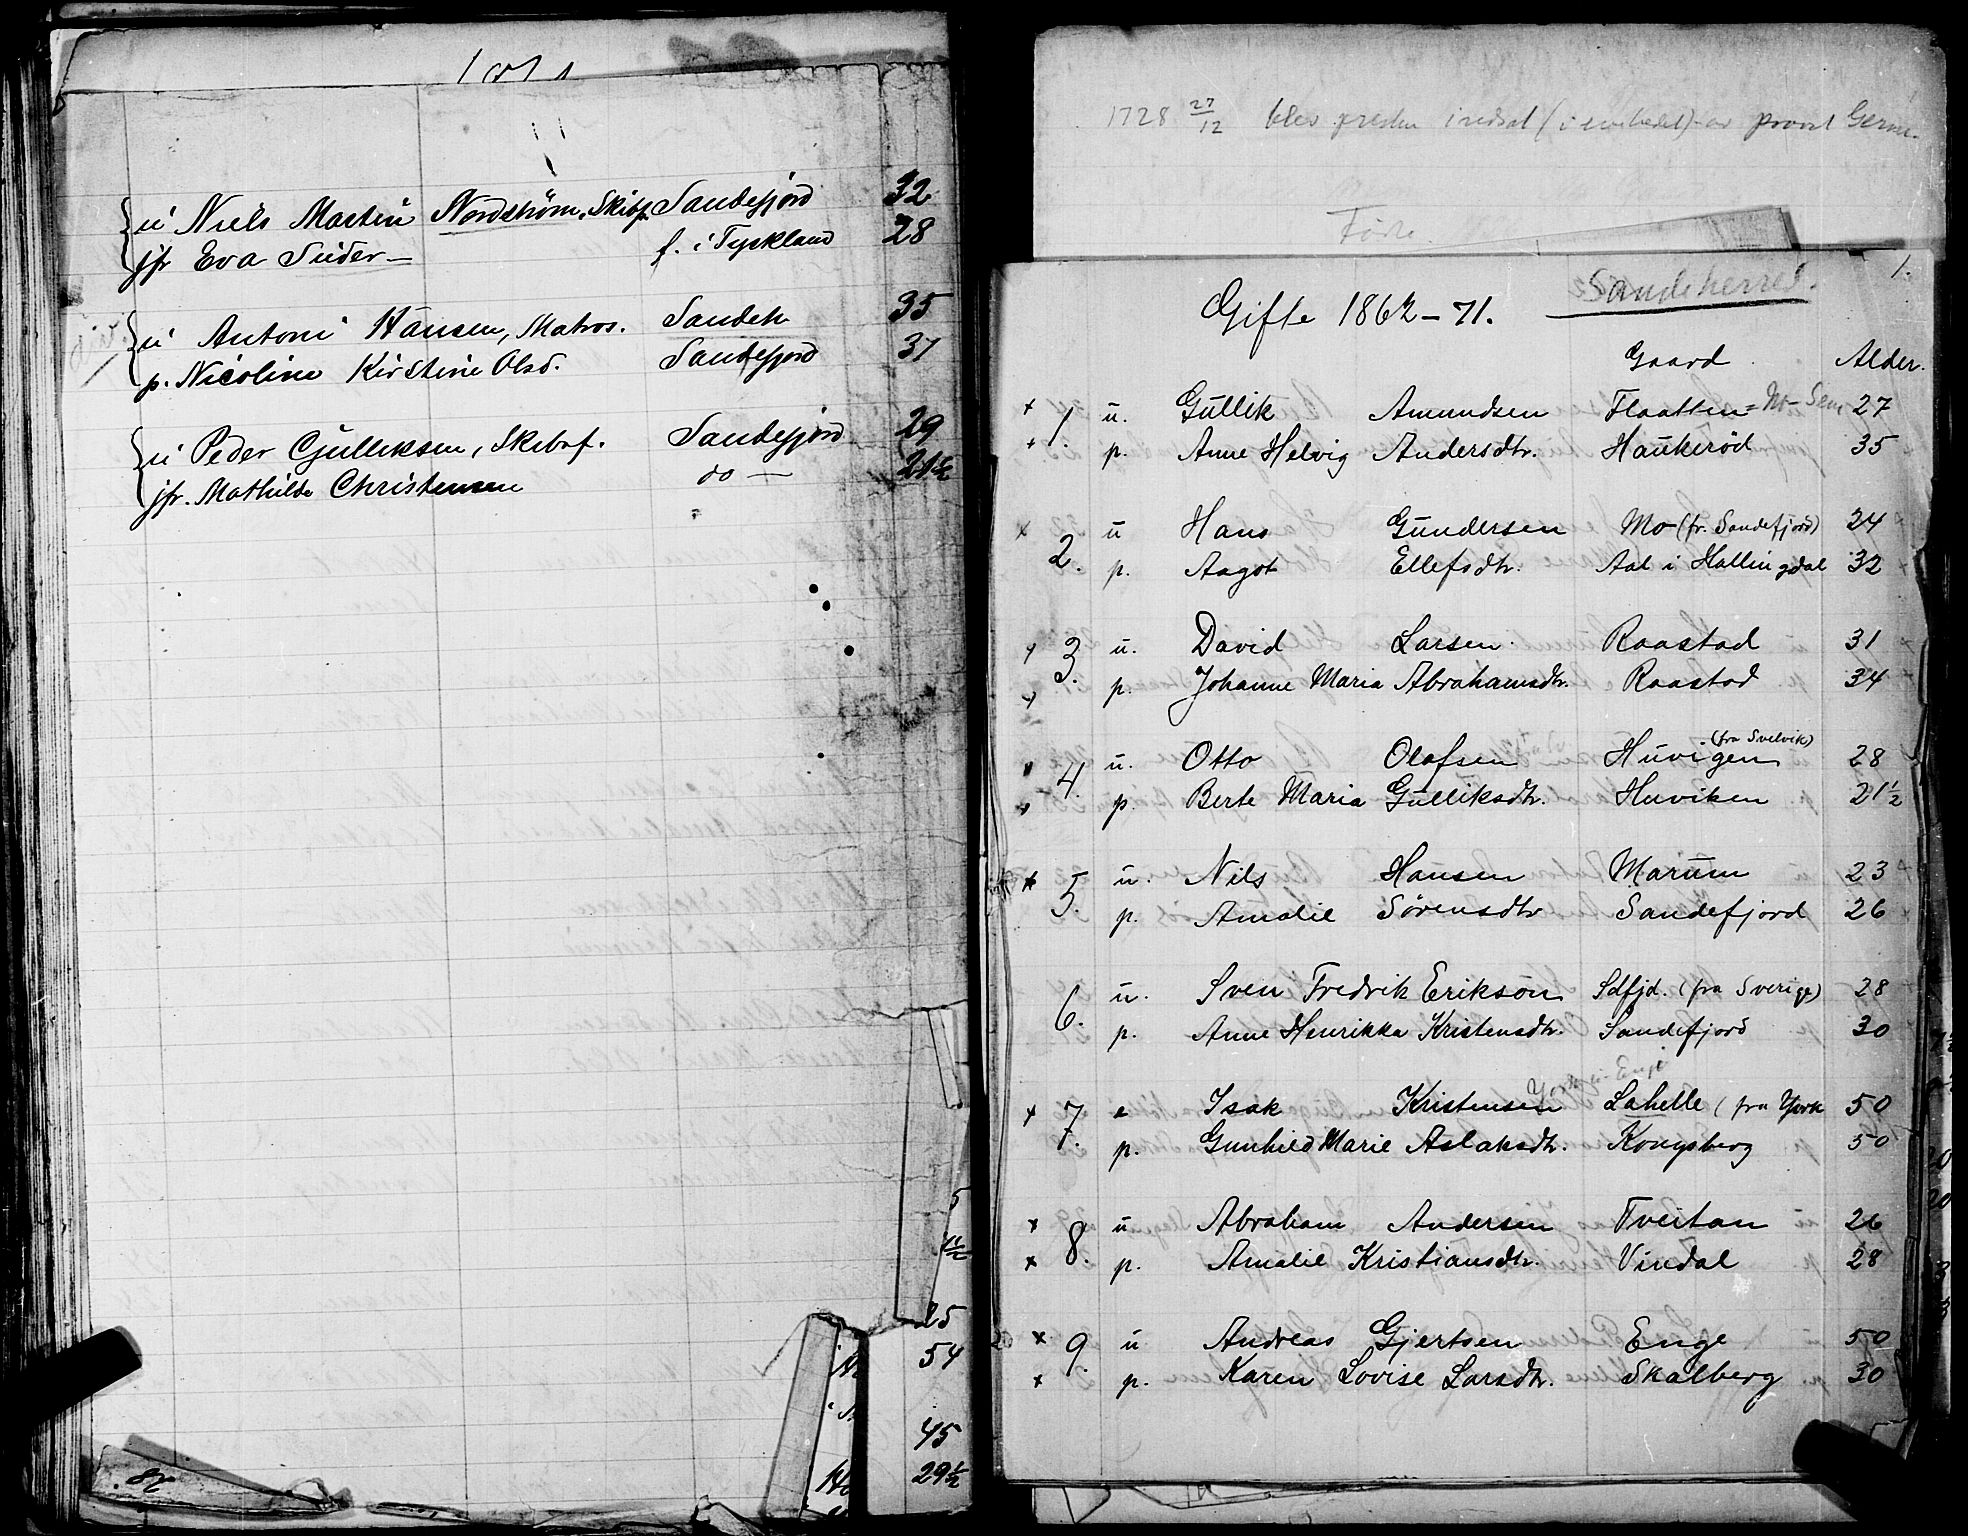 ü Niels Martin Nordstrøm, Skibsf. Sandefjord 32
jfr Eva Suder — f. i Tyskland 28
ü Antoni Hansen, Matros. Sandeh 35
p. Nicoline Kirstine Olsd. Sandefjord 31
ü Peder Gulliksen, Skibsf. Sandefjord 29
jfr. Mathilde Christensen do — 21½
25
54
45
29½
1728 27/12 blev presten indsat (i embedet) av provst
Føde
1.
Sandeherred.
Gifte 1862–71.
Gaard Alder.
1. u. Gullik Amundsen Flaatten = No- Sem 27
p. Anne Helvig Andersdtr. Haukerød 35
2. u Hans Gundersen Mo (fr. Sandefjord) 24
p. Aagot Ellefsdtr. Aal i Hallingdal 32
3. u. David Larsen Raastad 31
p. Johanne Maria Abrahamsdtr. Raastad 34
(fra Svelvik)
4. u. Otto Olafsen Huvigen 28
p. Berte Maria Gulliksdtr. Huviken 21½
5. u. Nils Hansen Marum 23
p. Amalie Sørensdtr Sandefjord 26
6. u. Sven Fredrik Erikson Sdfjd. (fra Sverige) 28
p. Anne Henrikka Kristensdtr. Sandefjord 30
7. e Isak Kristensen Lahelle (fra York 50
p. Gunhild Marie Aslaksdtr. Kongsberg 50
8. u Abraham Andersen Tveitan 26
p. Amalie Kristiansdtr. Vindal 28
9. u Andreas Gjertsen Enge 50
p. Karen Lovise Larsdtr. Skalberg 30